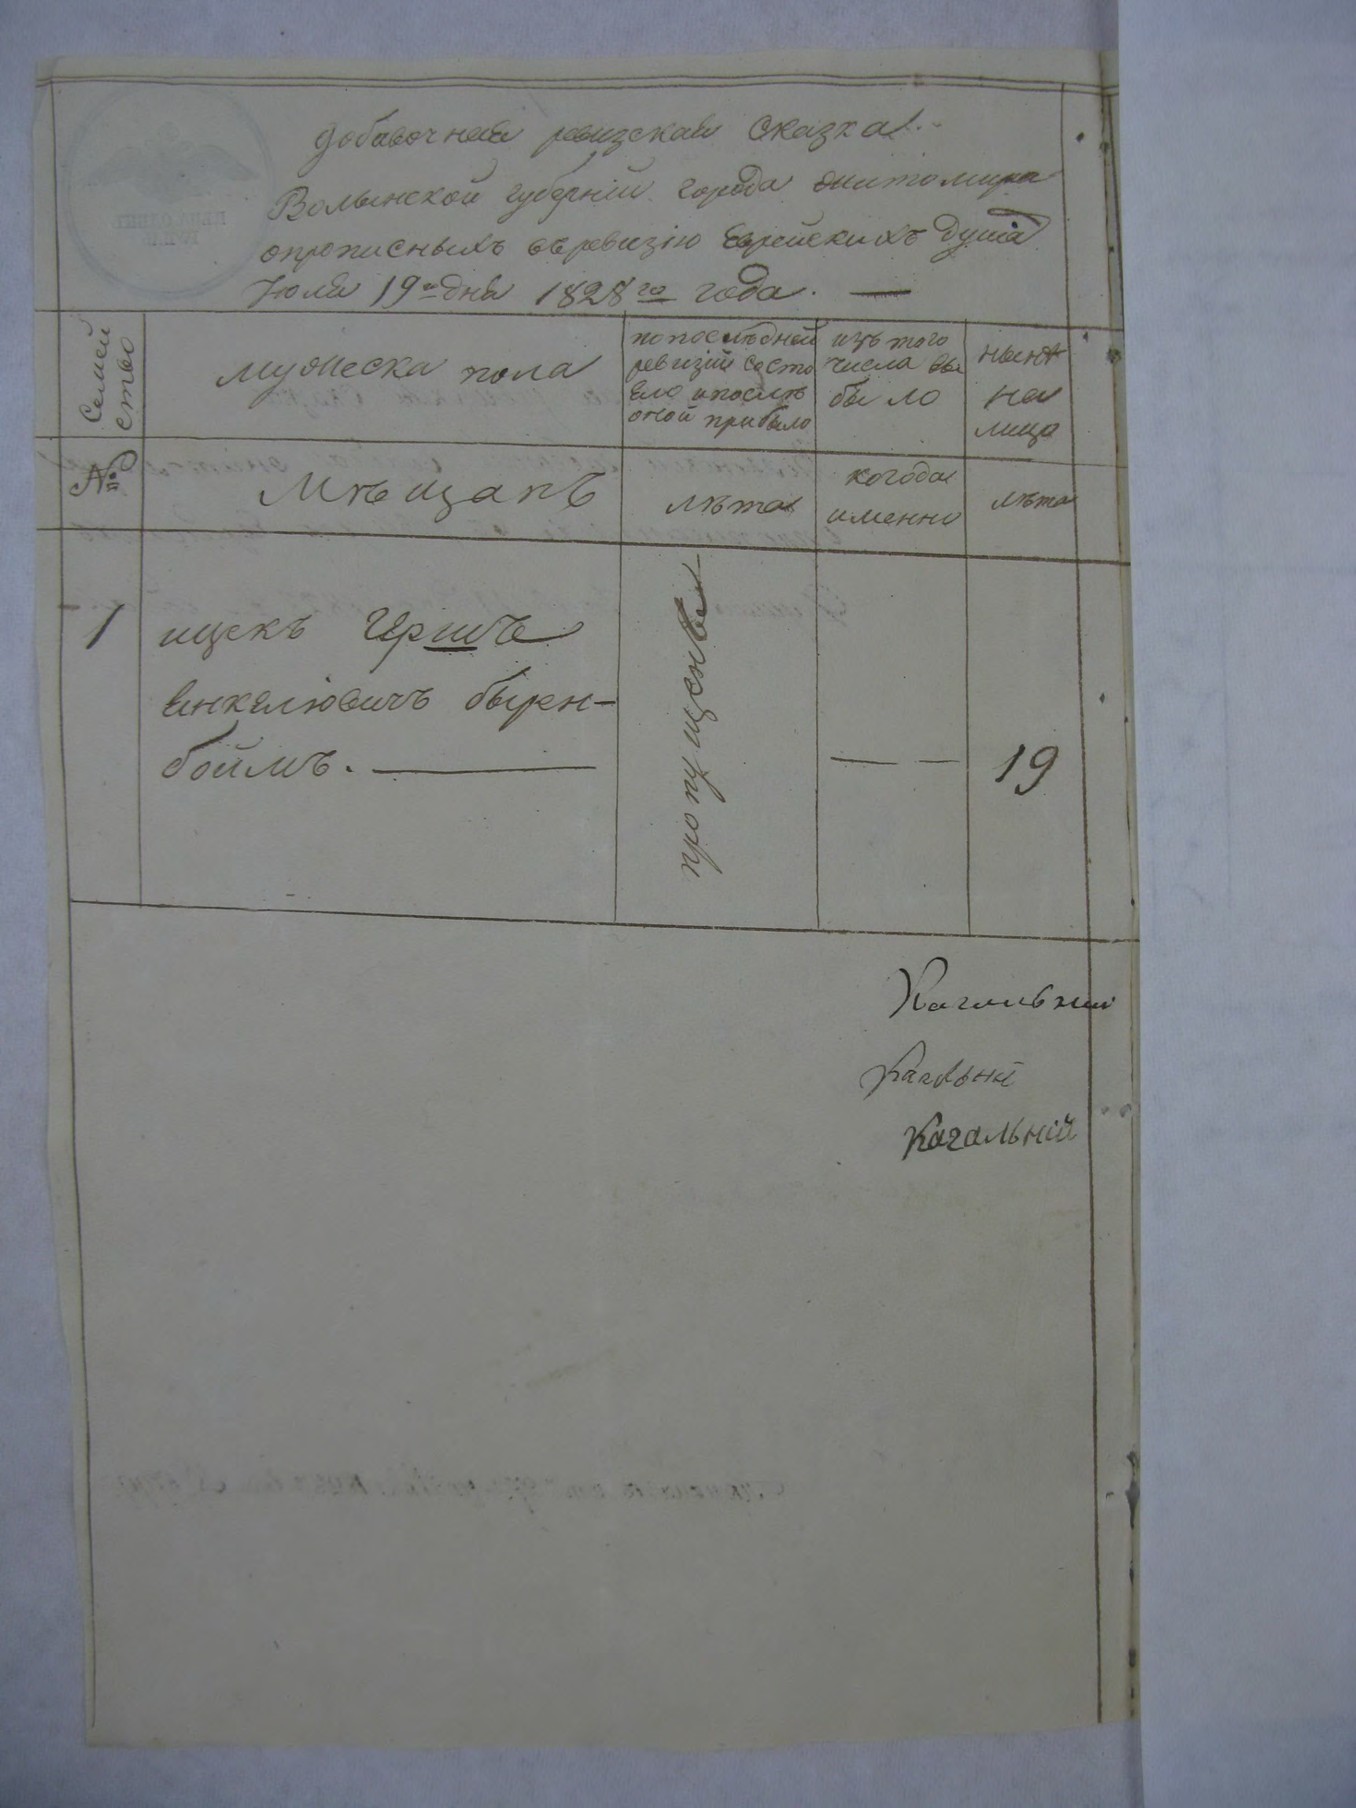 добавочная ревизская сказка.
Волынской губернии города Житомира
опрописныхъ въ ревизію Еврейскихъ душа
Июля 19го дня 1828го года. —
Семей
ство
мужеска пола
по последней
ревизій состо
яло и после
оной прибыло
изъ того
числа вы
было
ныне
на
лицо
№
Мещанъ
лета
когода
именно
лета
1
ицекъ Гершъ
Янкелювичъ бырен-
боймъ.
пропущенъ
— —
19
Кагальний
Кагальни
Кагальній